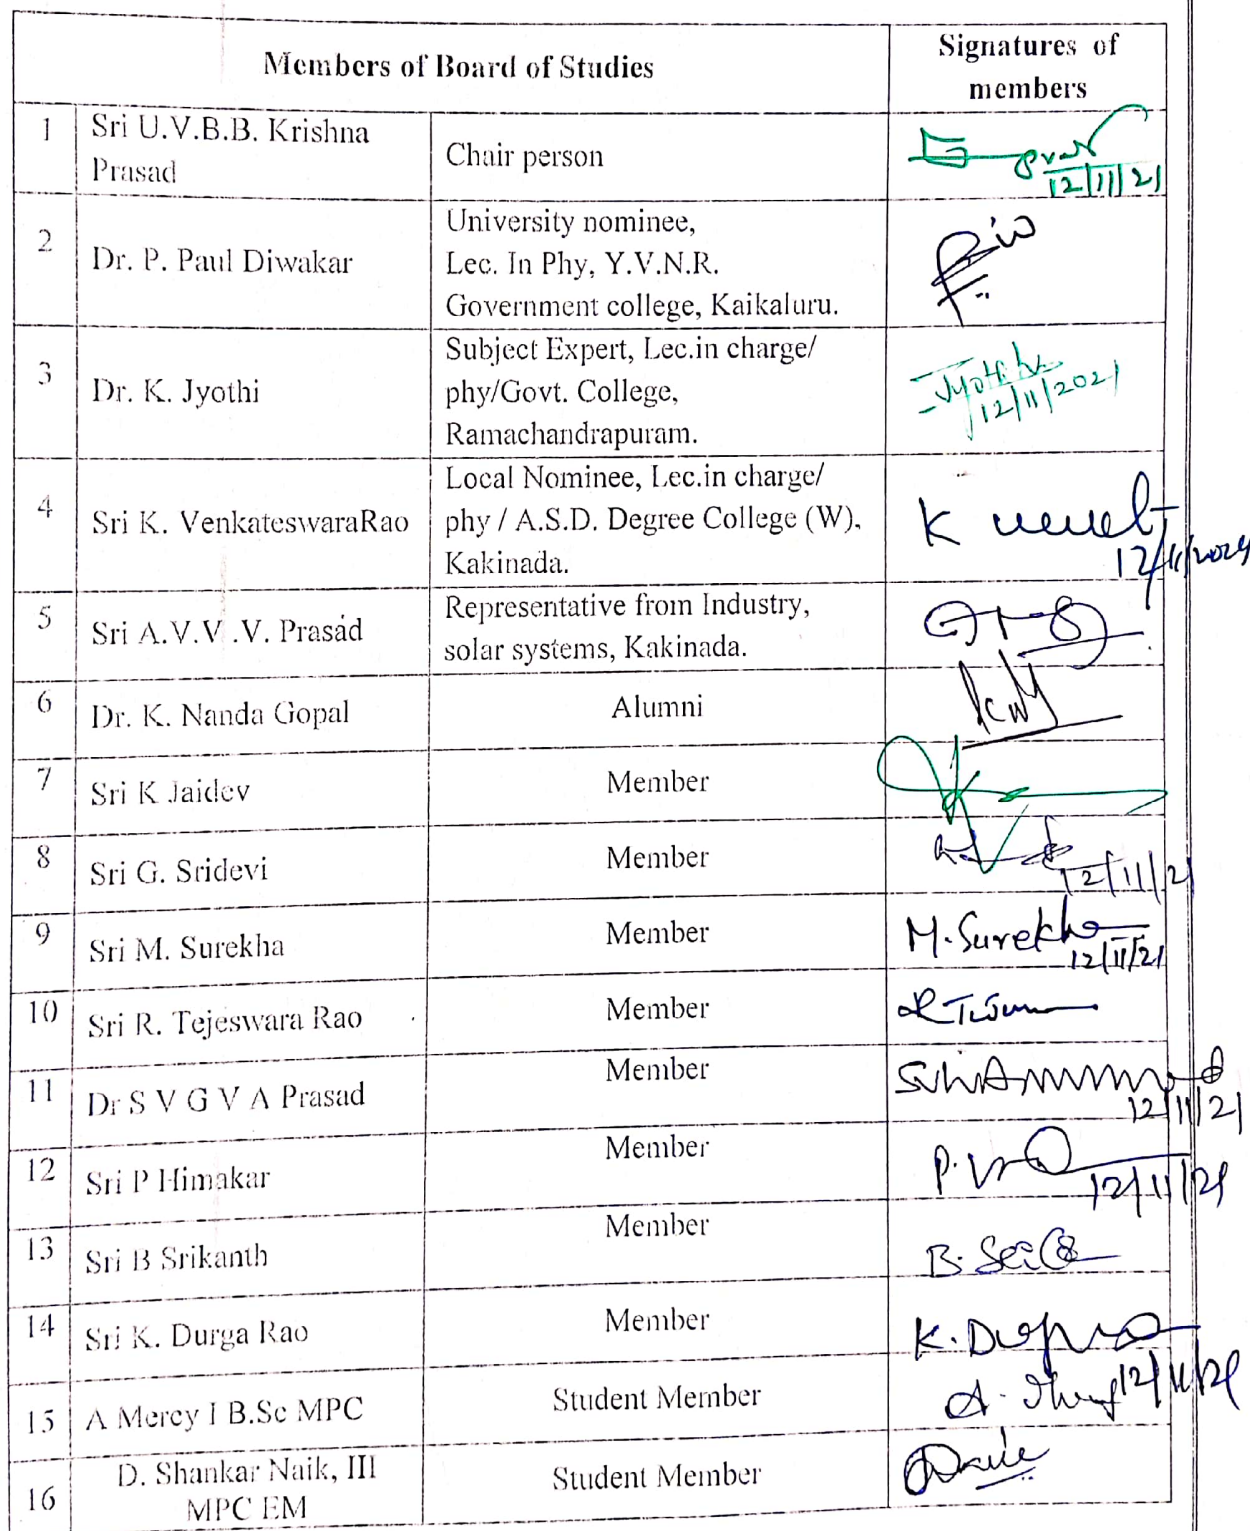 Members of Board of Studies
Signatures of
members
1
Sri U.V.B.B. Krishna
Prasad
Chair person
12/11/21
2
Dr. P. Paul Diwakar
University nominee,
Lec. In Phy, Y.V.N.R.
Government college, Kaikaluru.
3
Dr. K. Jyothi
Subject Expert, Lec.in charge/
phy/Govt. College,
Ramachandrapuram.
12/11/2021
4
Sri K. VenkateswaraRao
Local Nominee, Lec.in charge/
phy / A.S.D. Degree College (W),
Kakinada.
K
5
Sri A.V.V .V. Prasad
Representative from Industry,
solar systems, Kakinada.
6
Dr. K. Nanda Gopal
Alumni
7
Sri K Jaidev
Member
8
Sri G. Sridevi
Member
12/11/21
9
Sri M. Surekha
Member
M. Surekha
12/11/21
10
Sri R. Tejeswara Rao
Member
11
Dr S V G V A Prasad
Member
12/11/21
12
Sri P Himakar
Member
P.
12/11/21
13
Sri B Srikanth
Member
B.
14
Sri K. Durga Rao
Member
K.
12/11/21
15
A Mercy I B.Sc MPC
Student Member
A.
16
D. Shankar Naik, III
MPC EM
Student Member